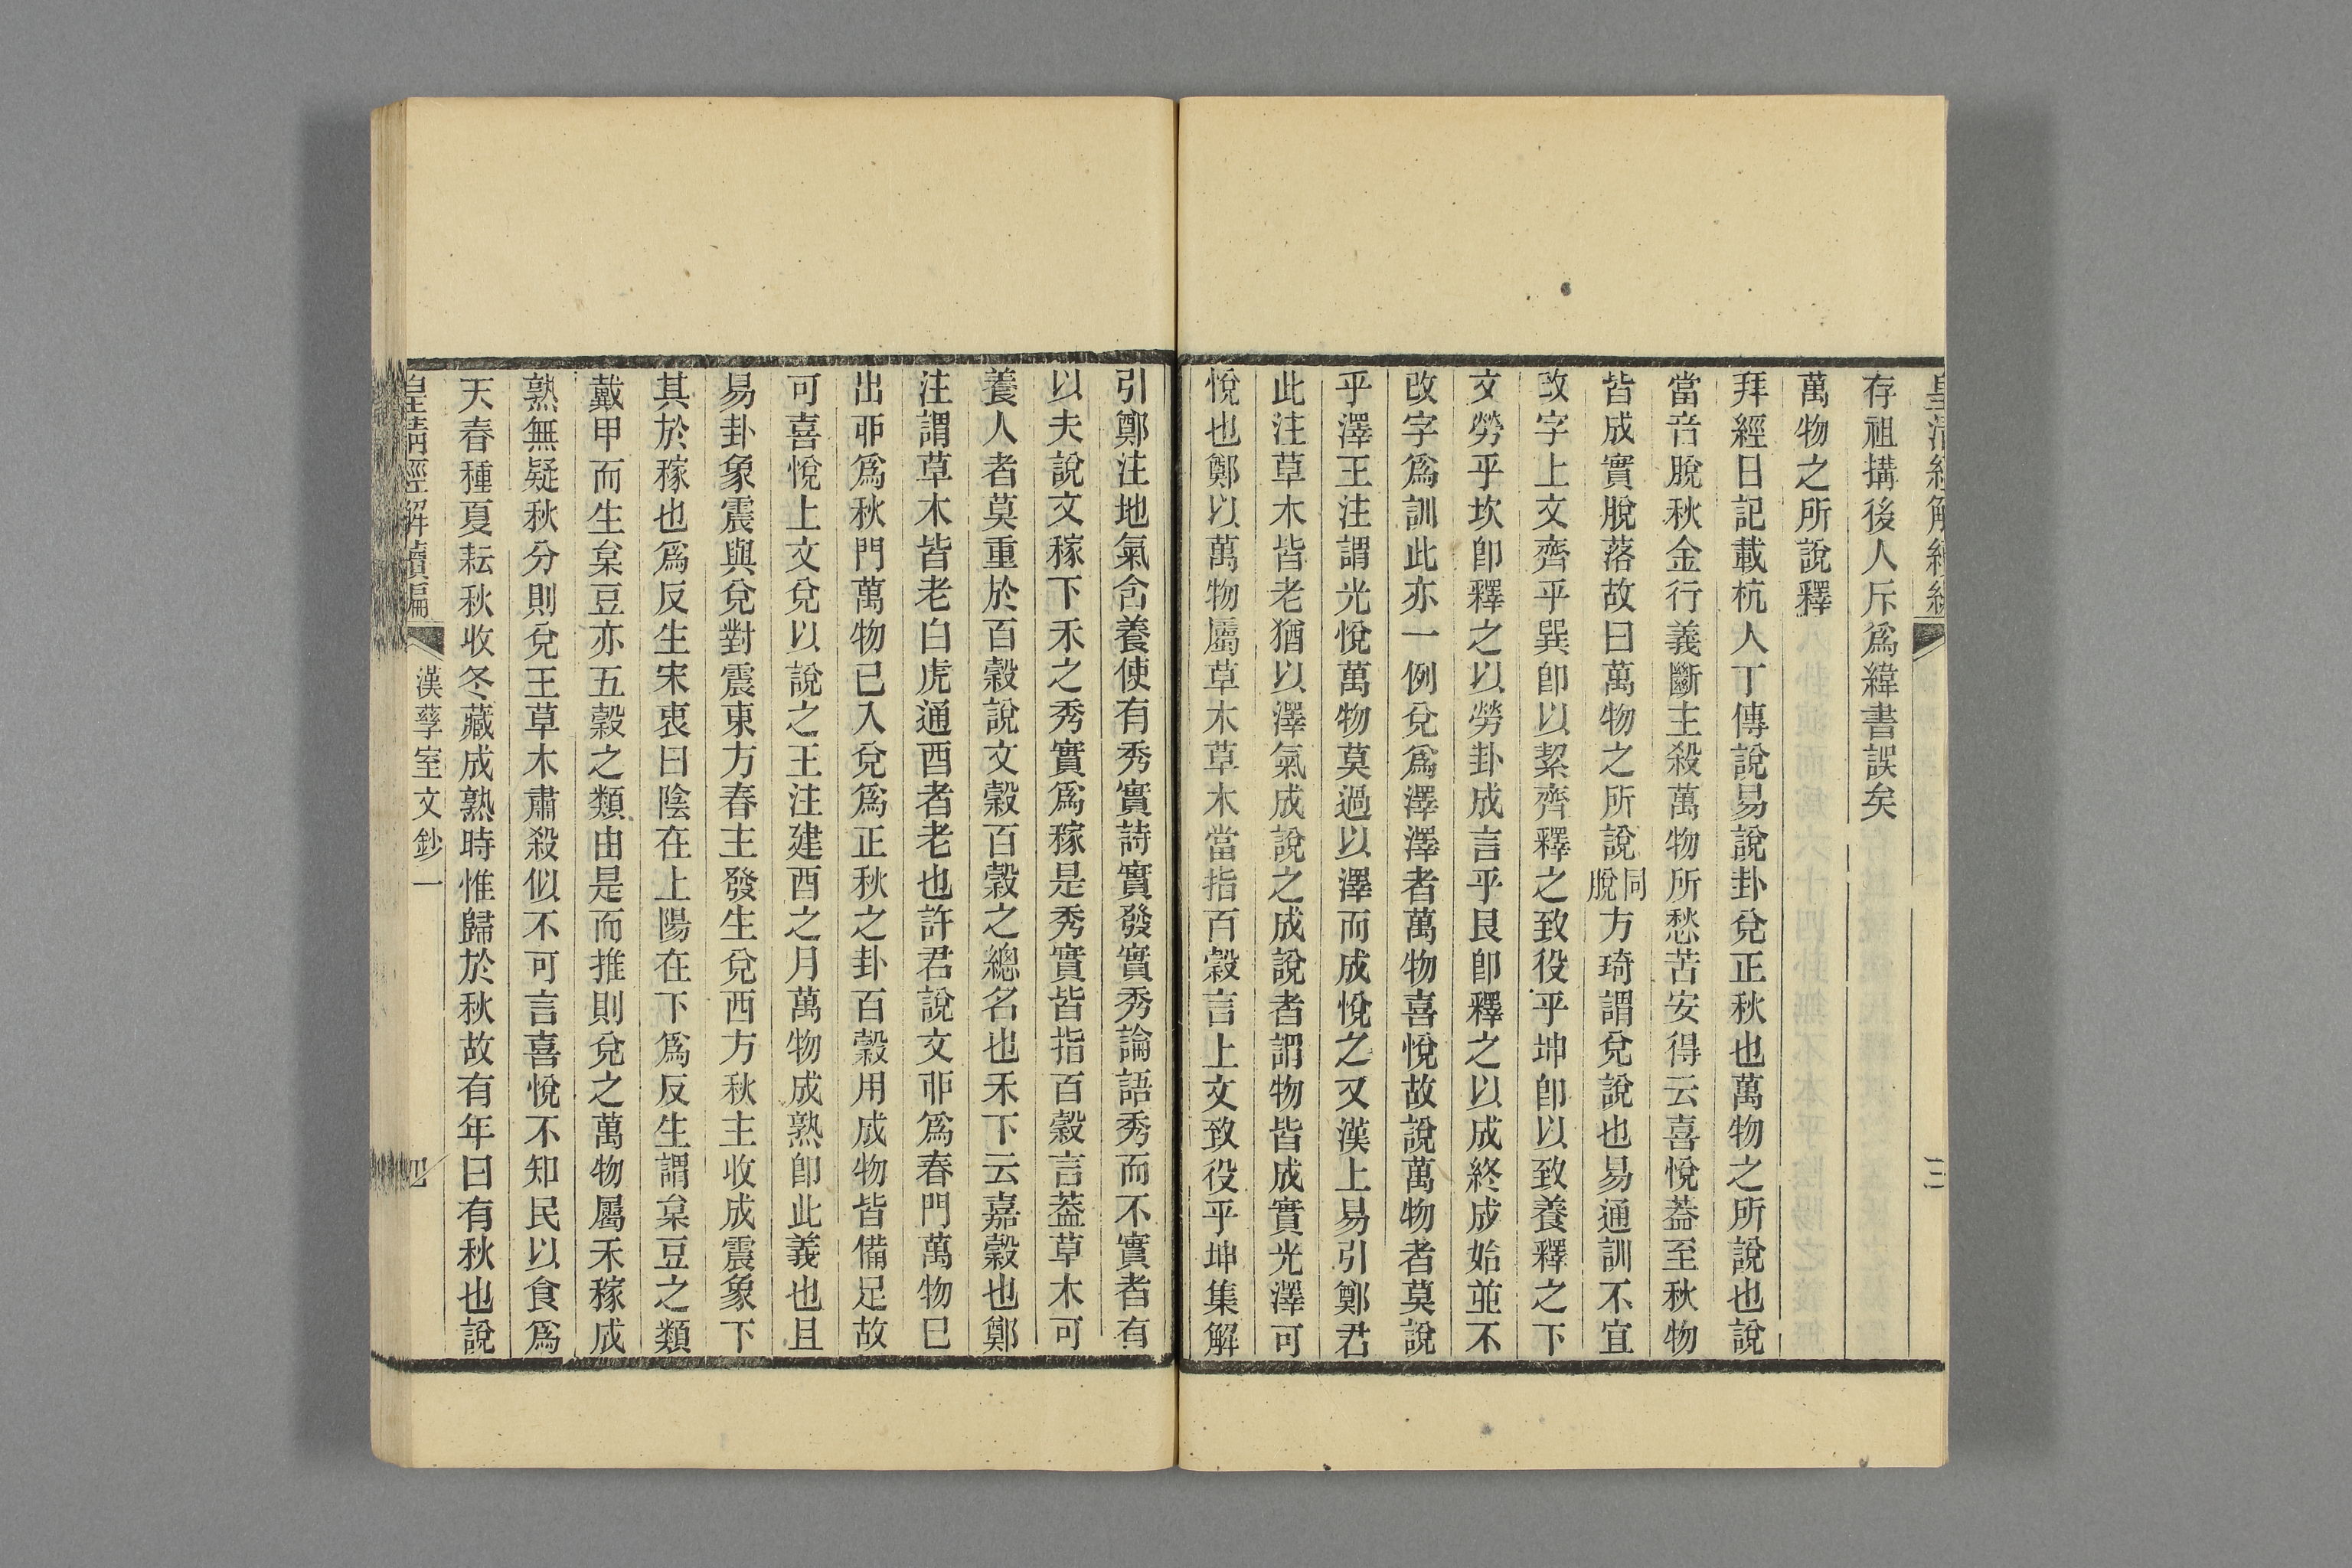 皇清經解續編
三
存祖搆後人斥爲緯書誤矣
萬物之所說釋
拜經日記載杭人丁傳說易說卦兌正秋也萬物之所說也說
當音脫秋金行義斷主殺萬物所愁苦安得云喜悅葢至秋物
皆成實脫落故曰萬物之所說同脫方琦謂兌說也易通訓不宜
改字上文齊乎巽卽以絜齊釋之致役乎坤卽以致養釋之下
文勞乎坎卽釋之以勞卦成言乎艮卽釋之以成終成始並不
改字爲訓此亦一例兌爲澤澤者萬物喜悅故說萬物者莫說
乎澤王注謂光悅萬物莫過以澤而成悅之又漢上易引鄭君
此注草木皆老猶以澤氣成說之成說者謂物皆成實光澤可
悅也鄭以萬物屬草木草木當指百穀言上文致役乎坤集解
引鄭注地氣含養使有秀實詩實發實秀論語秀而不實者有
以夫說文稼下禾之秀實爲稼是秀實皆指百穀言葢草木可
養人者莫重於百穀說文穀百穀之總名也禾下云嘉穀也鄭
注謂草木皆老白虎通酉者老也許君說文丣爲春門萬物已
出丣爲秋門萬物已入兌爲正秋之卦百穀用成物皆備足故
可喜悅上文兌以說之王注建酉之月萬物成熟卽此義也且
易卦象震與兌對震東方春主發生兌西方秋主收成震象下
其於稼也爲反生宋衷曰陰在上陽在下爲反生謂枲豆之類
戴甲而生枲豆亦五穀之類由是而推則兌之萬物屬禾稼成
熟無疑秋分則兌王草木肅殺似不可言喜悅不知民以食爲
天春種夏耘秋收冬藏成熟時惟歸於秋故有年曰有秋也說
皇清經解續編
漢孳室文鈔一
四